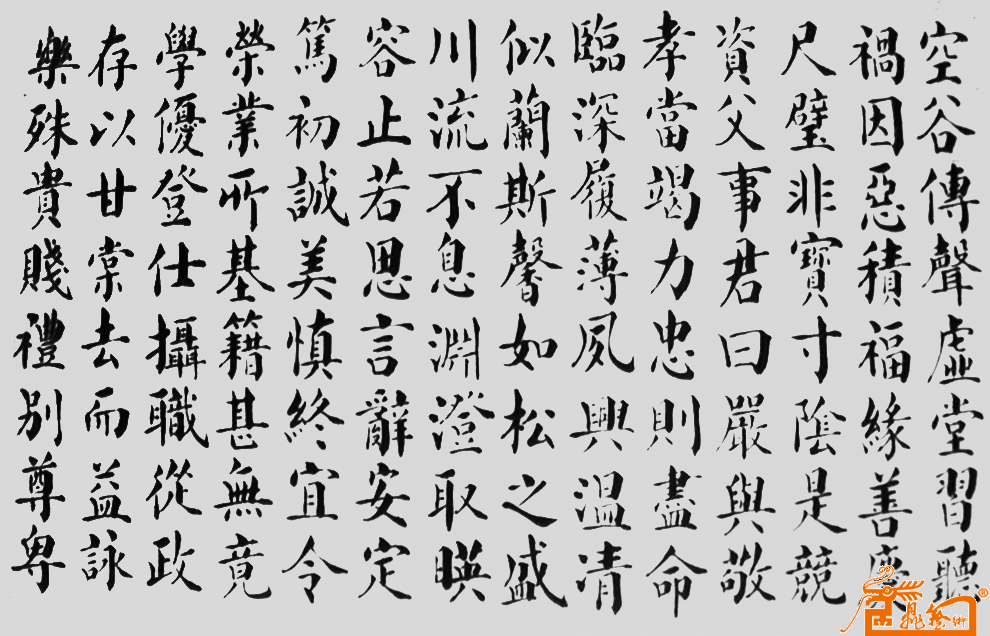 空谷傳聲虛堂習聽
禍因惡積福緣善慶
尺璧非寶寸陰是競
資父事君曰嚴與敬
孝當竭力忠則盡命
臨深履薄夙興溫凊
似蘭斯馨如松之盛
川流不息淵澄取暎
容止若思言辭安定
篤初誠美慎終宜令
榮業所基籍甚無竟
學優登仕攝職從政
存以甘棠去而益詠
樂殊貴賤禮別尊卑